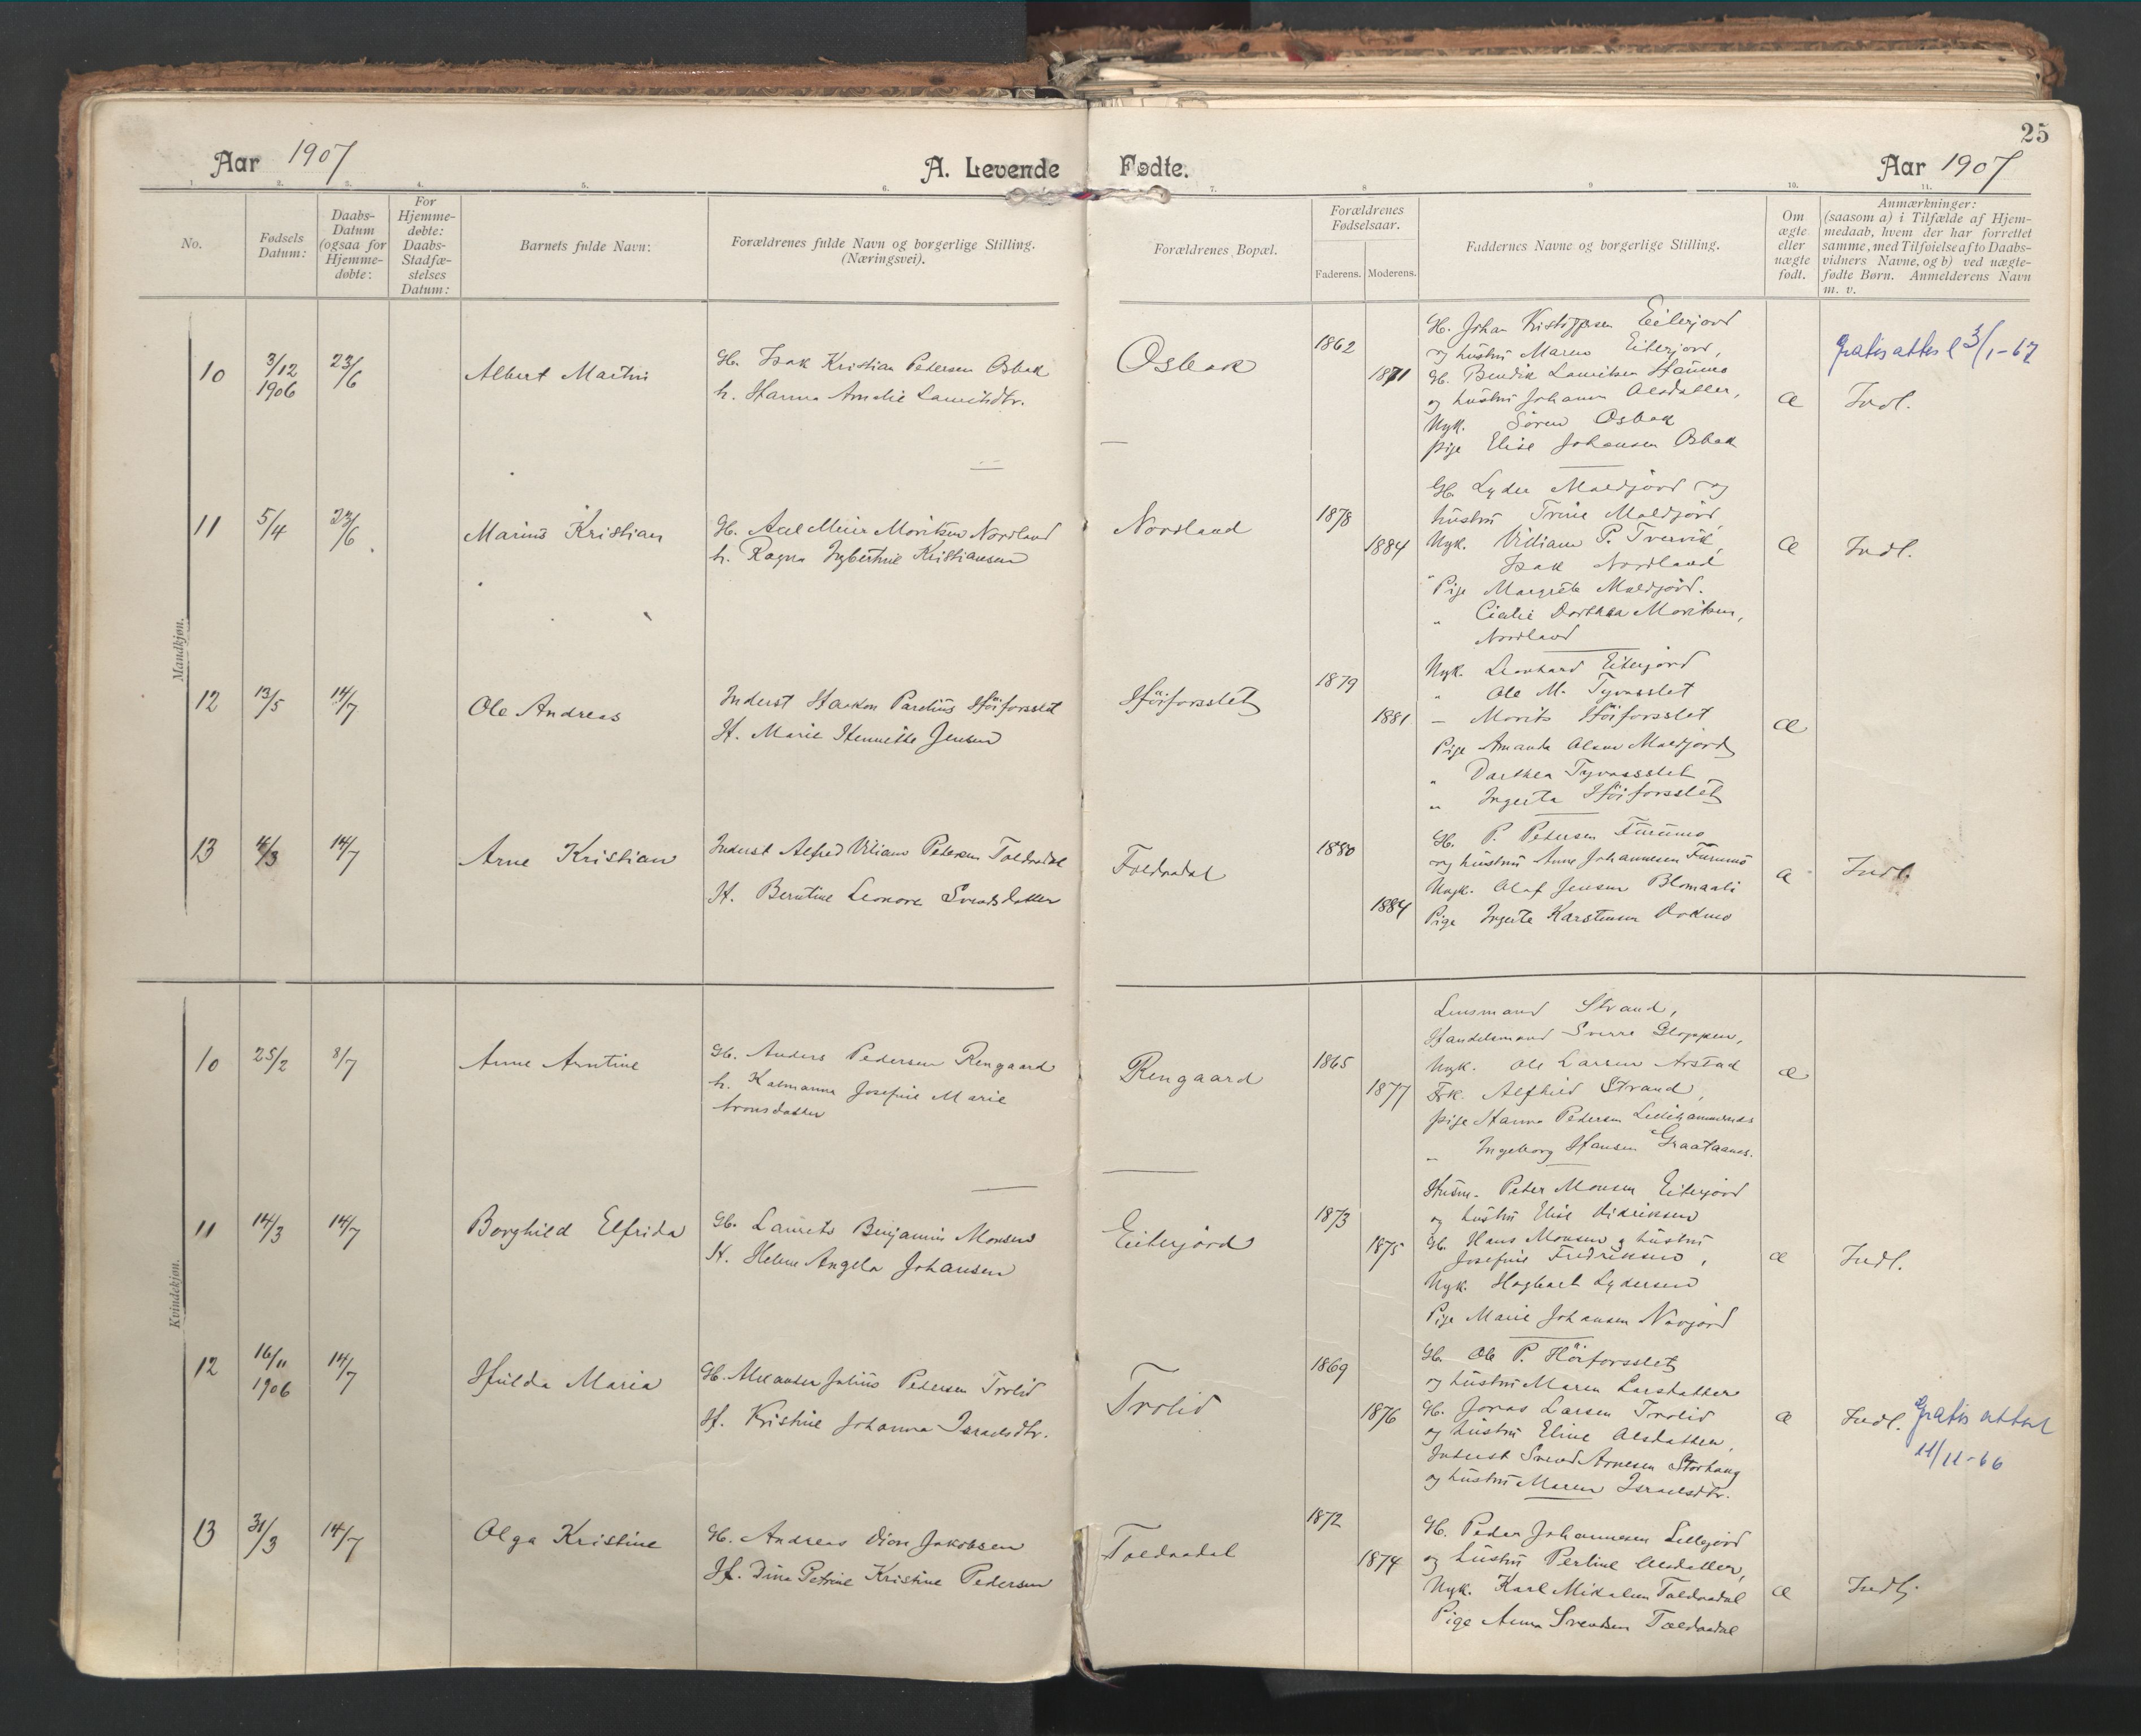 25
Aar 1907
A. Levende Fødte.
Aar 1907
1. 2. 3. 4. 5. 6. 7. 8 9 10. 11.
No.
Fødsels Datum:
Daabs-Datum (ogsaa for Hjemme-døbte:
For Hjemme-døbte: Daabs-Stadfæ-stelses Datum:
Barnets fulde Navn:
Forældrenes fulde Navn og borgerlige Stilling.
(Næringsvei).
Forældrenes Bopæl.
Forældrenes Fødselsaar.
Faderens. Moderens.
Faddernes Navne og borgerlige Stilling.
Om ægte eller uægte født.
Anmærkninger:
(saasom a) i Tilfælde af Hjem-
medaab, hvem der har forrettet
samme, med Tilføielse af to Daabs-
vidners Navne, og b) ved uægte-
fødte Børn. Anmelderens Navn
m. v.
Mandkjøn.
10 3/12 1906 23/6 Albert Martin
Gb. Isak Kristian Petersen Osbak
h. Hanna Amalie Lauritsdtr.
Osbak
1862
1871
Gb. Johan Kristoffersen Eiterjord
og hustru Maren Eiterjord,
Gb. Bendik Lauritsen Staumo
og hustru Johanna Olsdatter,
Ugk. Sören Osbak
pige Elise Johansen Osbak
æ
Indl.
Gratis attest 3/1-67
11 5/4 23/6 Marius Kristian
Gb. Axel Meier Moritsen Nordland
h. Ragna Ingbertine Kristiansen
Nordland
1878
1884
Gb. Lyder Maldjord og
hustru Trine Maldjord,
Ugk. Villiam P. Tvervik,
Isak Nordland
Pige Margrete Maldjord.
" Cicilie Dorthea Moritsen,
Nordland
æ
Indl.
12 13/5 14/7 Ole Andreas
Inderst Haakon Parelius Höiforsslet
H. Marie Hennitke Jensen
Höiforsslet
1879
1881
Ugk. Leonhard Eiterjord
" Ole M. Tyvasslet
– Morits Höiforsslet
Pige Amanda Olsen Maldjord
" Dorthea Tyvassslet
" Ingerta Höiforsslet
æ
13 4/3 14/7 Arne Kristian
Inderst Alfred Viliam Petersen Toldaadal
H. Berntine Leonore Svendsdatter
Toldaadal
1880
1884
Gb. P. Petersen Furumo
og hustru Anne Johannesen Furumo
Ungk. Olaf Jensen Blomaali
Pige Ingerta Karstensen Dokmo
æ
Indl.
Kvindekjøn.
10 25/2 8/7 Anne Arntine
Gb. Anders Pedersen Rengaard
h. Kalmanna Josefine Marie
Aronsdatter
Rengaard
1865
1877
Lensmand Strand,
Handelsmand Sverre Gloppen,
Ugk. Ole Larsen Arstad
Frk. Alfhild Strand,
pige Hanna Petersen
" Ingeborg Hansen Graataanes.
æ
11 14/3 14/7 Borghild Elfrida
Gb. Laurits Benjamin Monsen
H. Helene Angela Johansen
Eiterjord
1873
1875
Husm. Peter Monsen Eiterjord
og hustru Elise Didriksen
Gb. Hans Monsen og hustru
Josefine Fredriksen,
Ugk. Hagbart Lydersen
Pige Marie Johansen Novjord
æ
Indl.
12 16/11 1906 14/7 Hulda Maria
Gb. Alexander Julius Pedersen Trolid
H. Kristine Johanna Israelsdtr.
Trolid
1869
1876
Gb. Ole P. Höiforsslet
og hustru Maren Larsdatter
Gb. Jonas Larsen Trolid
og hustru Eline Olsdatter,
Inderst Svend Arnesen Storhaug
og hustru Maren Israelsdtr.
æ
Indl. Gratis attest
11/11-66
13 31/3 14/7 Olga Kristine
Gb. Andreas Dion Jakobsen
H. Dina Petrine Kristine Pedersen
Toldaadal
1872
1874
Gb. Peder Johannesen Lillejord
og hustru Perline Olsdatter,
Ugk. Karl Mikalsen Toldaadal
Pige Anna Svendsen Toldaadal
æ
Indl.